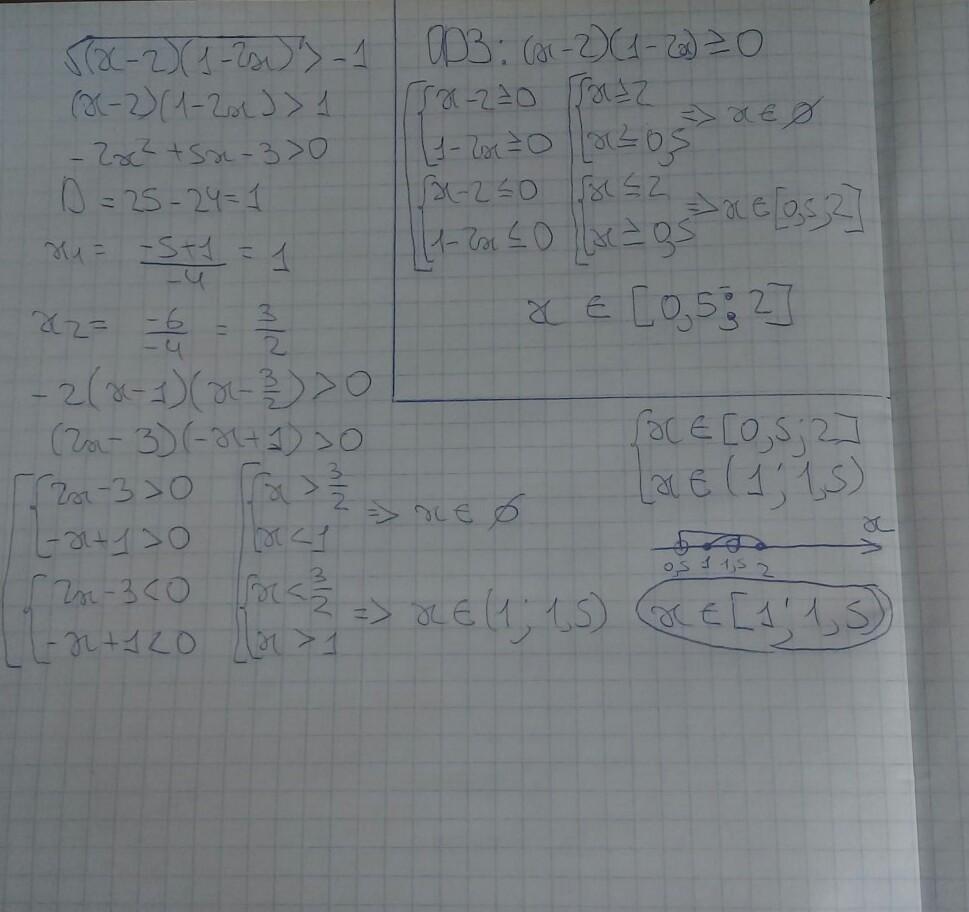 √(x-2)(1-2x) > -1
(x-2)(1-2x) > 1
-2x² + 5x - 3 > 0
D = 25 - 24 = 1
x₁ = (-5+1)/(-4) = 1
x₂ = (-6)/(-4) = 3/2
-2(x-1)(x-3/2) > 0
(2x-3)(-x+1) > 0
[ { 2x-3 > 0 [ { x > 3/2
-x+1 > 0 x < 1 => x ∈ ∅
{ 2x-3 < 0 { x < 3/2
-x+1 < 0 x > 1 => x ∈ (1; 1,5)
ОДЗ: (x-2)(1-2x) ≥ 0
[ { x-2 ≥ 0 [ { x ≥ 2
1-2x ≥ 0 x ≤ 0,5 => x ∈ ∅
{ x-2 ≤ 0 { x ≤ 2
1-2x ≤ 0 x ≥ 0,5 => x ∈ [0,5; 2]
x ∈ [0,5; 2]
{ x ∈ [0,5; 2]
x ∈ (1; 1,5)
x
0,5 1 1,5 2
x ∈ [1; 1,5)